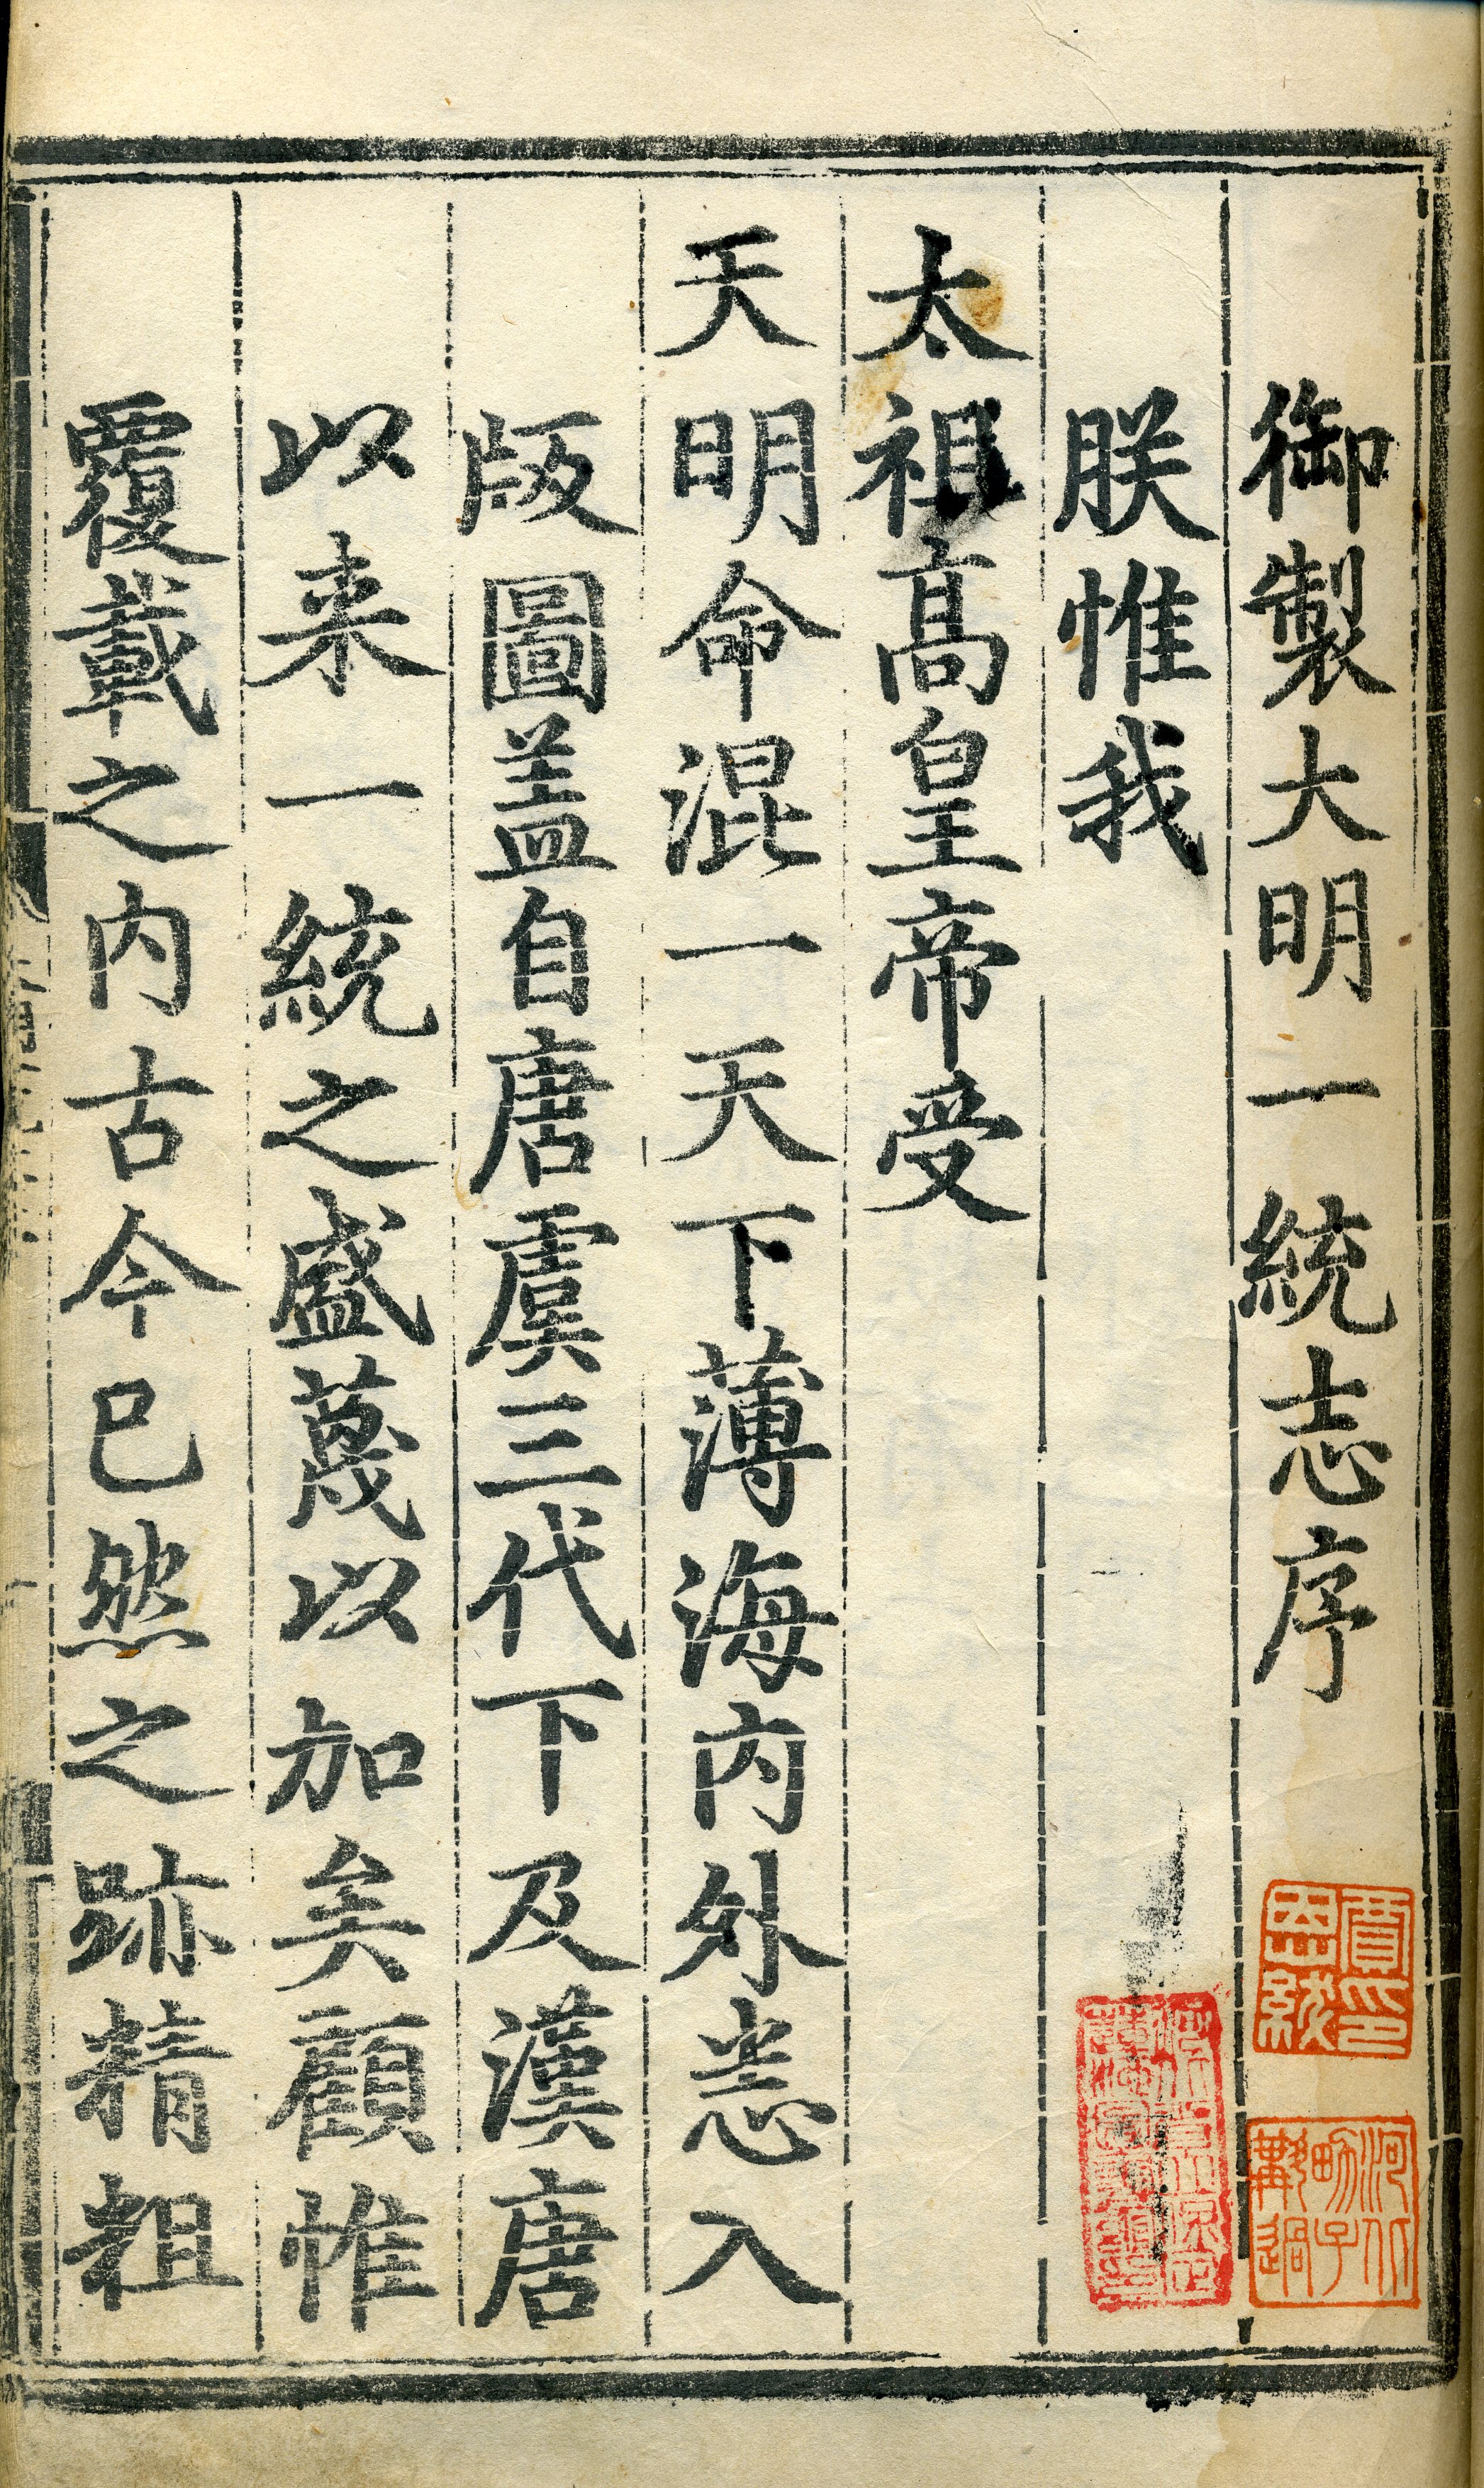 御製大明一統志序
朕惟我
太祖高皇帝受
天明命混一天下薄海內外悉入
版圖葢自唐虞三代下及漢唐
以来一統之盛蔑以加矣顧惟
覆載之內古今已然之跡精粗